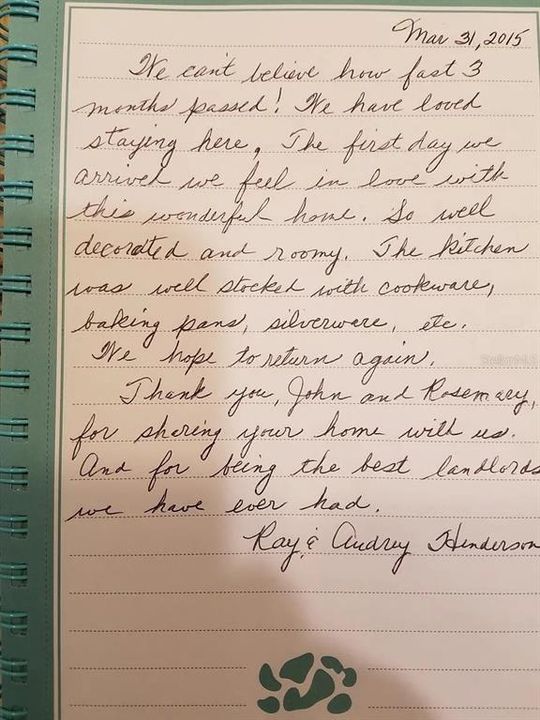 Mar 31, 2015
We can't believe how fast 3
months passed! We have loved
staying here. The first day we
arrived we feel in love with
this wonderful home. So well
decorated and roomy. The kitchen
was well stocked with cookware,
baking pans, silverware, etc.
We hope to return again.
Thank you, John and Rosemary,
for sharing your home will us.
And for being the best landlords
we have ever had.
Ray & Audrey Henderson